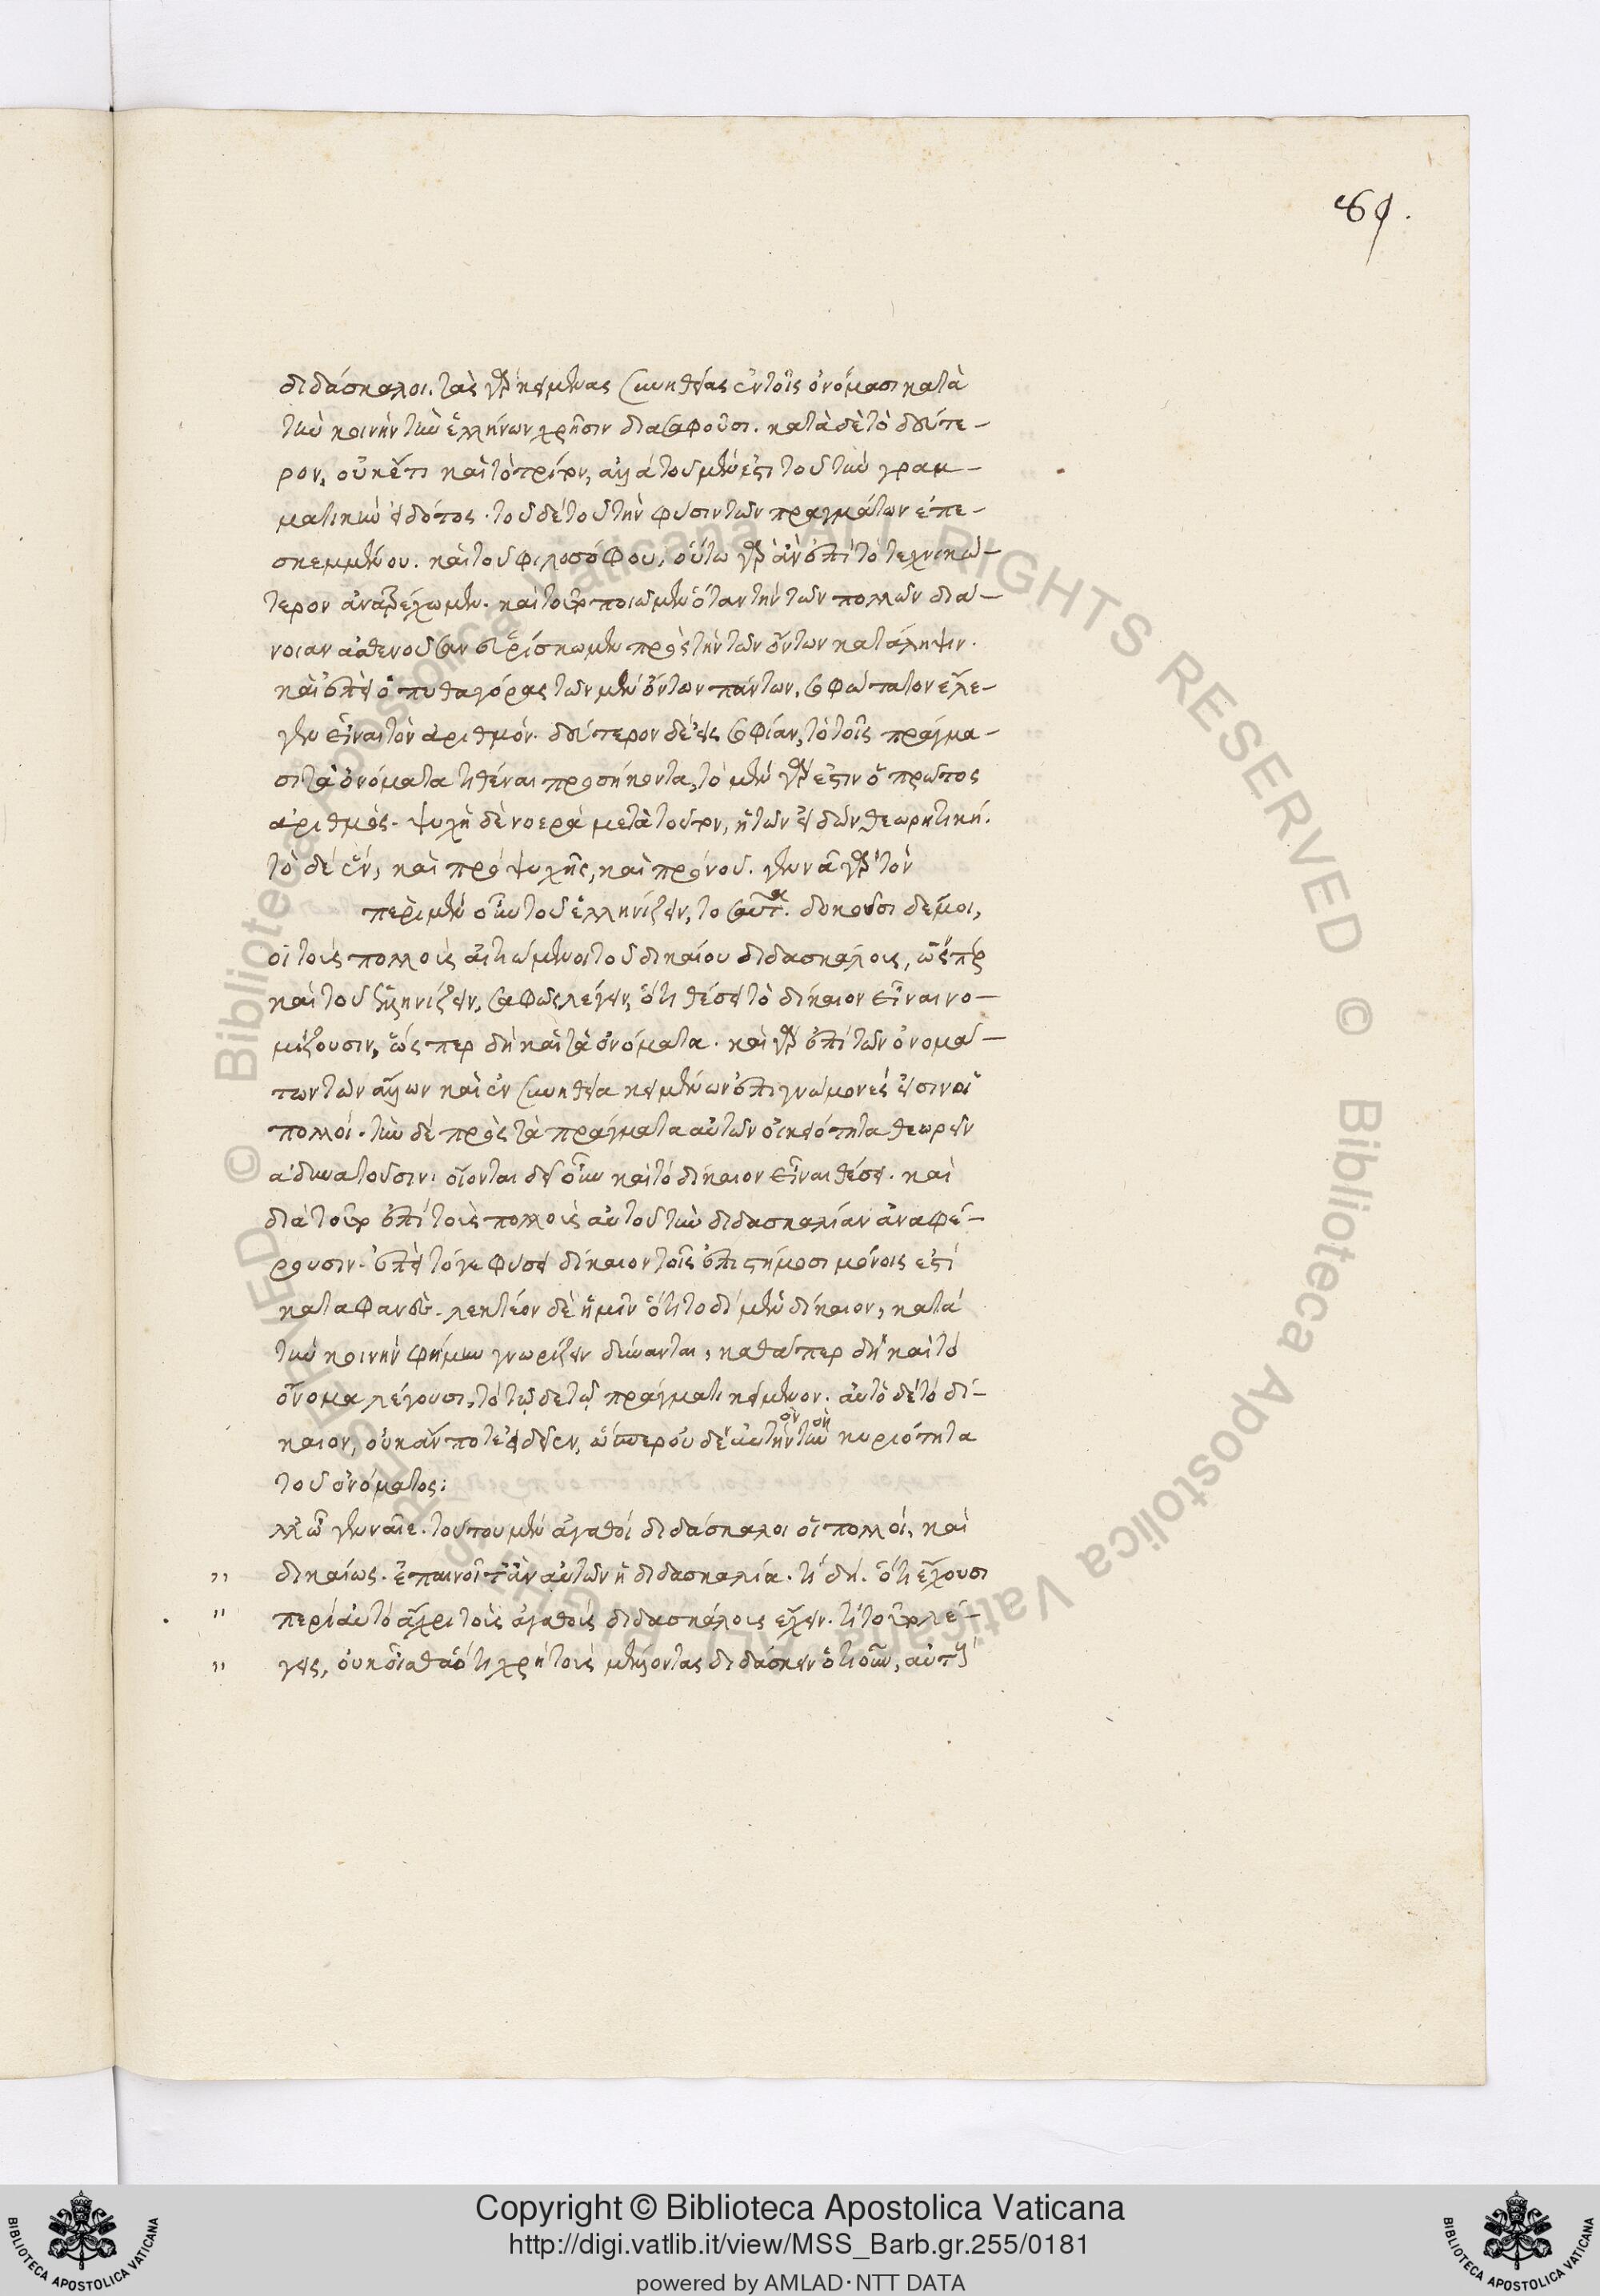 89.
διδάσκαλοι. τὰς γὰρ κειμένας συνηθείας ἐν τοῖς ὀνόμασι κατὰ
τὴν κοινὴν τῶν ἑλλήνων χρῆσιν διασαφοῦσι. κατὰ δὲ τὸ δεύτε-
ρον, οὐκέτι καὶ τὸ τρίτον, ἀλλὰ τοῦ μέν ἐστι τοῦ τὴν γραμ-
ματικὴν εἰδότος. τοῦ δὲ τοῦ τὴν φύσιν τῶν πραγμάτων ἐπε-
σκεμμένου. καὶ τοῦ φιλοσόφου, οὕτω γὰρ ἂν ἐπὶ τὸ τεχνικώ-
τερον ἀνατρέχωμεν. καὶ τοῦτο ποιῶμεν ὅταν τὴν τῶν πολλῶν διά-
νοιαν ἀσθενοῦσαν εὑρίσκωμεν πρὸς τὴν τῶν ὄντων κατάληψιν.
καὶ ἐπεὶ ὁ πυθαγόρας τῶν μὲν ὄντων πάντων, σοφώτατον ἔλε-
γεν εἶναι τὸν ἀριθμόν. δεύτερον δὲ εἰς σοφίαν, τὸ τοῖς πράγμα-
σι τὰ ὀνόματα τιθέναι προσήκοντα, τὸ μὲν γάρ ἐστιν ὁ πρῶτος
ἀριθμός. ψυχὴ δὲ νοερὰ μετὰ τοῦτον, ἡ τῶν εἰδῶν θεωρητική.
τὸ δὲ ἕν, καὶ πρὸ ψυχῆς, καὶ πρὸ νοῦ. γεννᾶ γὰρ τὸν
περὶ μὲν οὖν τοῦ ἑλληνίζειν, τοσαῦτα. δοκοῦσι δέ μοι,
οἱ τοὺς πολλοὺς αἰτιώμενοι τοῦ δικαίου διδασκάλους, ὥσπερ
καὶ τοῦ ἑλληνίζειν, σαφῶς λέγειν, ὅτι θέσει τὸ δίκαιον εἶναι νο-
μίζουσιν, ὥς περ δὴ καὶ τὰ ὀνόματα. καὶ γὰρ ἐπὶ τῶν ὀνομά-
των τῶν ἄλλων καὶ ἐν συνηθείᾳ κειμένων ἐπιγνώμονές εἰσιν οἱ
πολλοί. τὴν δὲ πρὸς τὰ πράγματα αὐτῶν οἰκειότητα θεωρεῖν
ἀδυνατοῦσιν. οἴονται δὲ οὖν καὶ τὸ δίκαιον εἶναι θέσει. καὶ
διὰ τοῦτο ἐπὶ τοὺς πολλοὺς αὐτοῦ τὴν διδασκαλίαν ἀναφέ-
ρουσιν. ἐπεὶ τό γε φύσει δίκαιον τοῖς ἐπιστήμοσι μόνοις ἐστὶ
καταφανές. λεκτέον δὲ ἡμῖν ὅτι τοδὶ μὲν δίκαιον, κατὰ
τὴν κοινὴν φήμην γνωρίζειν δύνανται, καθάπερ δὴ καὶ τὸ
ὄνομα λέγουσι, τὸ τῷδε τῷ πράγματι κείμενον. αὐτὸ δὲ τὸ δί-
καιον, οὐκ ἄν ποτε εἰδεῖεν, ὥσπερ οὐδὲ αὐτὴν τὴν κυριότητα
τοῦ ὀνόματος:
ἀλλ' ὦ γενναῖε. τούτου μὲν ἀγαθοὶ διδάσκαλοι οἱ πολλοί, καὶ
" δικαίως. ἐπαινοῖτ' ἂν αὐτῶν ἡ διδασκαλία. τί δή. ὅτι ἔχουσι
" περὶ αὐτὸ ἃ χρὴ τοὺς ἀγαθοὺς διδασκάλους ἔχειν. τί τοῦτο λέ-
" γεις, οὐκ οἶσθα ὅτι χρὴ τοὺς μέλλοντας διδάσκειν ὁτιοῦν, αὐτοὺς
Copyright © Biblioteca Apostolica Vaticana
http://digi.vatlib.it/view/MSS_Barb.gr.255/0181
powered by AMLAD·NTT DATA